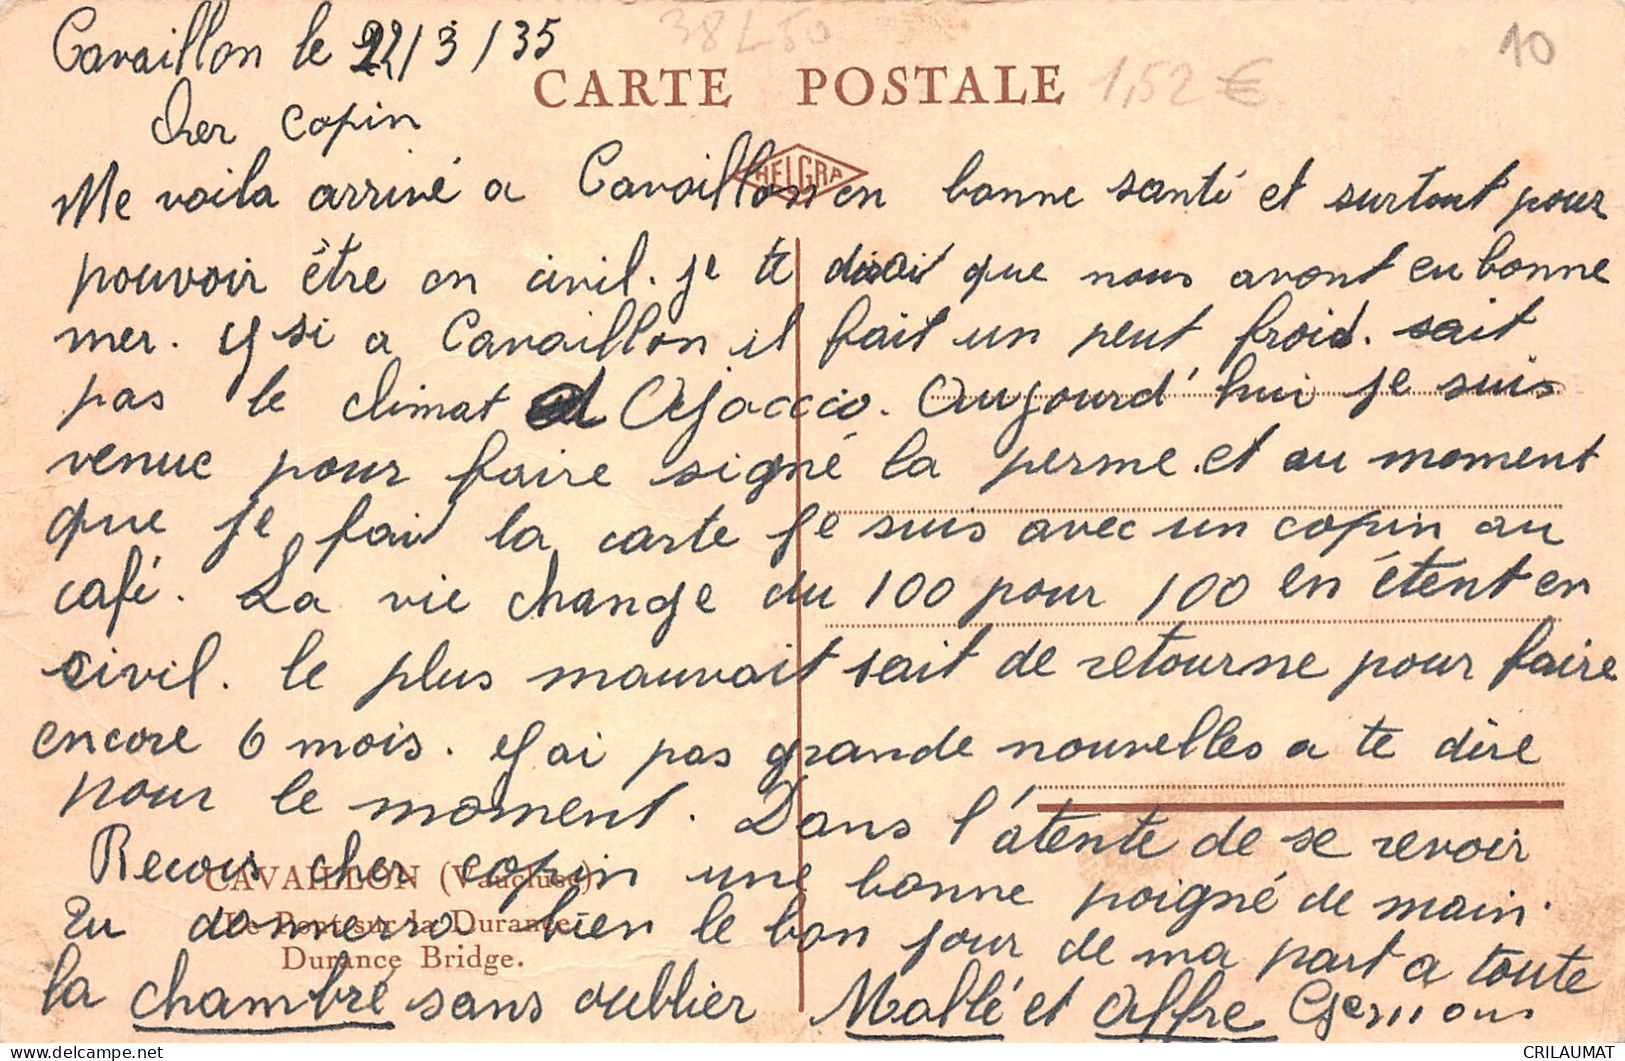 Cavaillon le 22/3/35
38L50
10
CARTE POSTALE
1,52 €
cher copin
HELGRA
Me voila arrivé a Cavaillon en bonne santé et surtout pour
pouvoir être en civil. je te disai que nous avont eu bonne
mer. y si a Cavaillon il fait un peut froid. sait
pas le climat d Ajaccio. Aujourd'hui je suis
venue pour faire signé la perme. et au moment
que je fait la carte je suis avec un copin au
café. La vie change du 100 pour 100 en étent en
civil. le plus mauvait sait de retourne pour faire
encore 6 mois. j'ai pas grande nouvelles a te dire
pour le moment. Dans l'átente de se revoir
Recois cher copin une bonne poigné de main.
CAVAILLON (Vaucluse)
Tu donnera bien le bon jour de ma part a toute
Le Pont sur la Durance
Durance Bridge.
la chambré sans oublier Mallé et Affre
CRILAUMAT